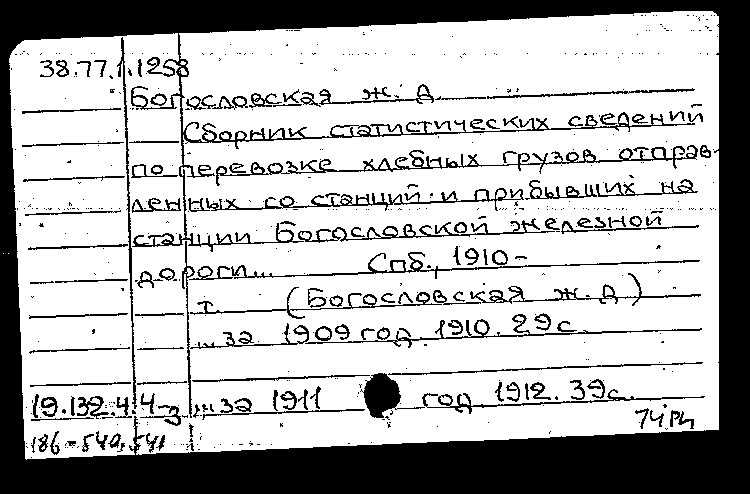 38.77.1.1258
Богословская ж. д.
Сборник статистических сведений
по перевозке хлебных грузов отправ-
ленных со станций и прибывших на
станции Богословской железной
дороги... Спб., 1910-
т. (Богословская ж. д)
...за 1909 год. 1910. 29с.
19.132.4.4-3 ...за 1911 год. 1912. 39с.
186-540,541